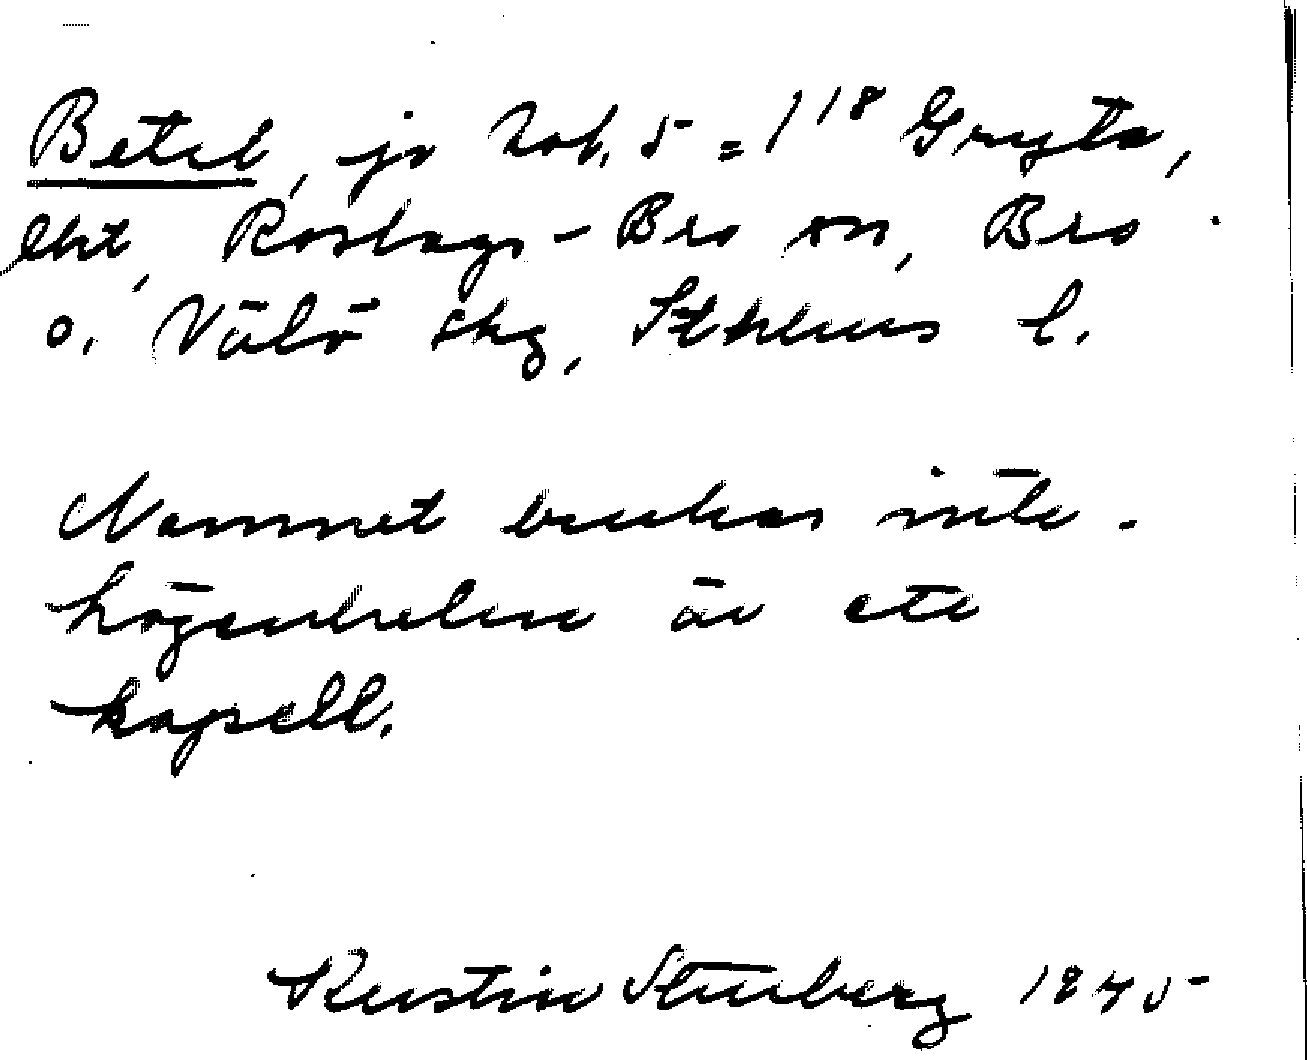 Betel, jo kat. 5 = 1¹⁸ Gryta,
lht, Roslags-Bro sn, Bro
o. Vätö skg, Sthlms l.
Namnet brukas inte.
Lägenheten är ett
kapell.
Kerstin Stenberg 1945